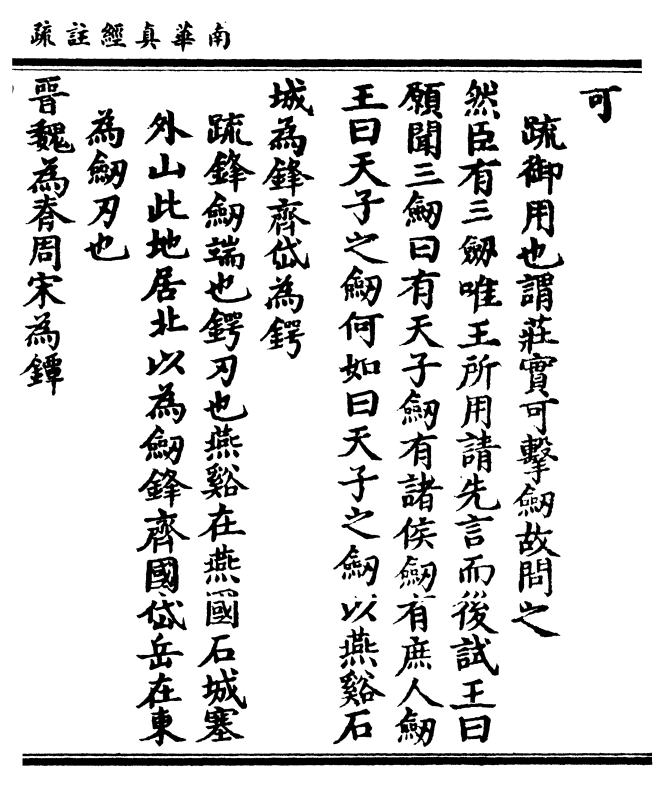 南華真經註疏
可
疏御用也謂莊實可擊劒故問之
然臣有三劒唯王所用請先言而後試王曰
願聞三劒曰有天子劒有諸侯劒有庶人劒
王曰天子之劒何如曰天子之劒以燕谿石
城為鋒齊岱為鍔
疏鋒劒端也鍔刃也燕谿在燕國石城塞
外山此地居北以為劒鋒齊國岱岳在東
為劒刃也
晉魏為脊周宋為鐔